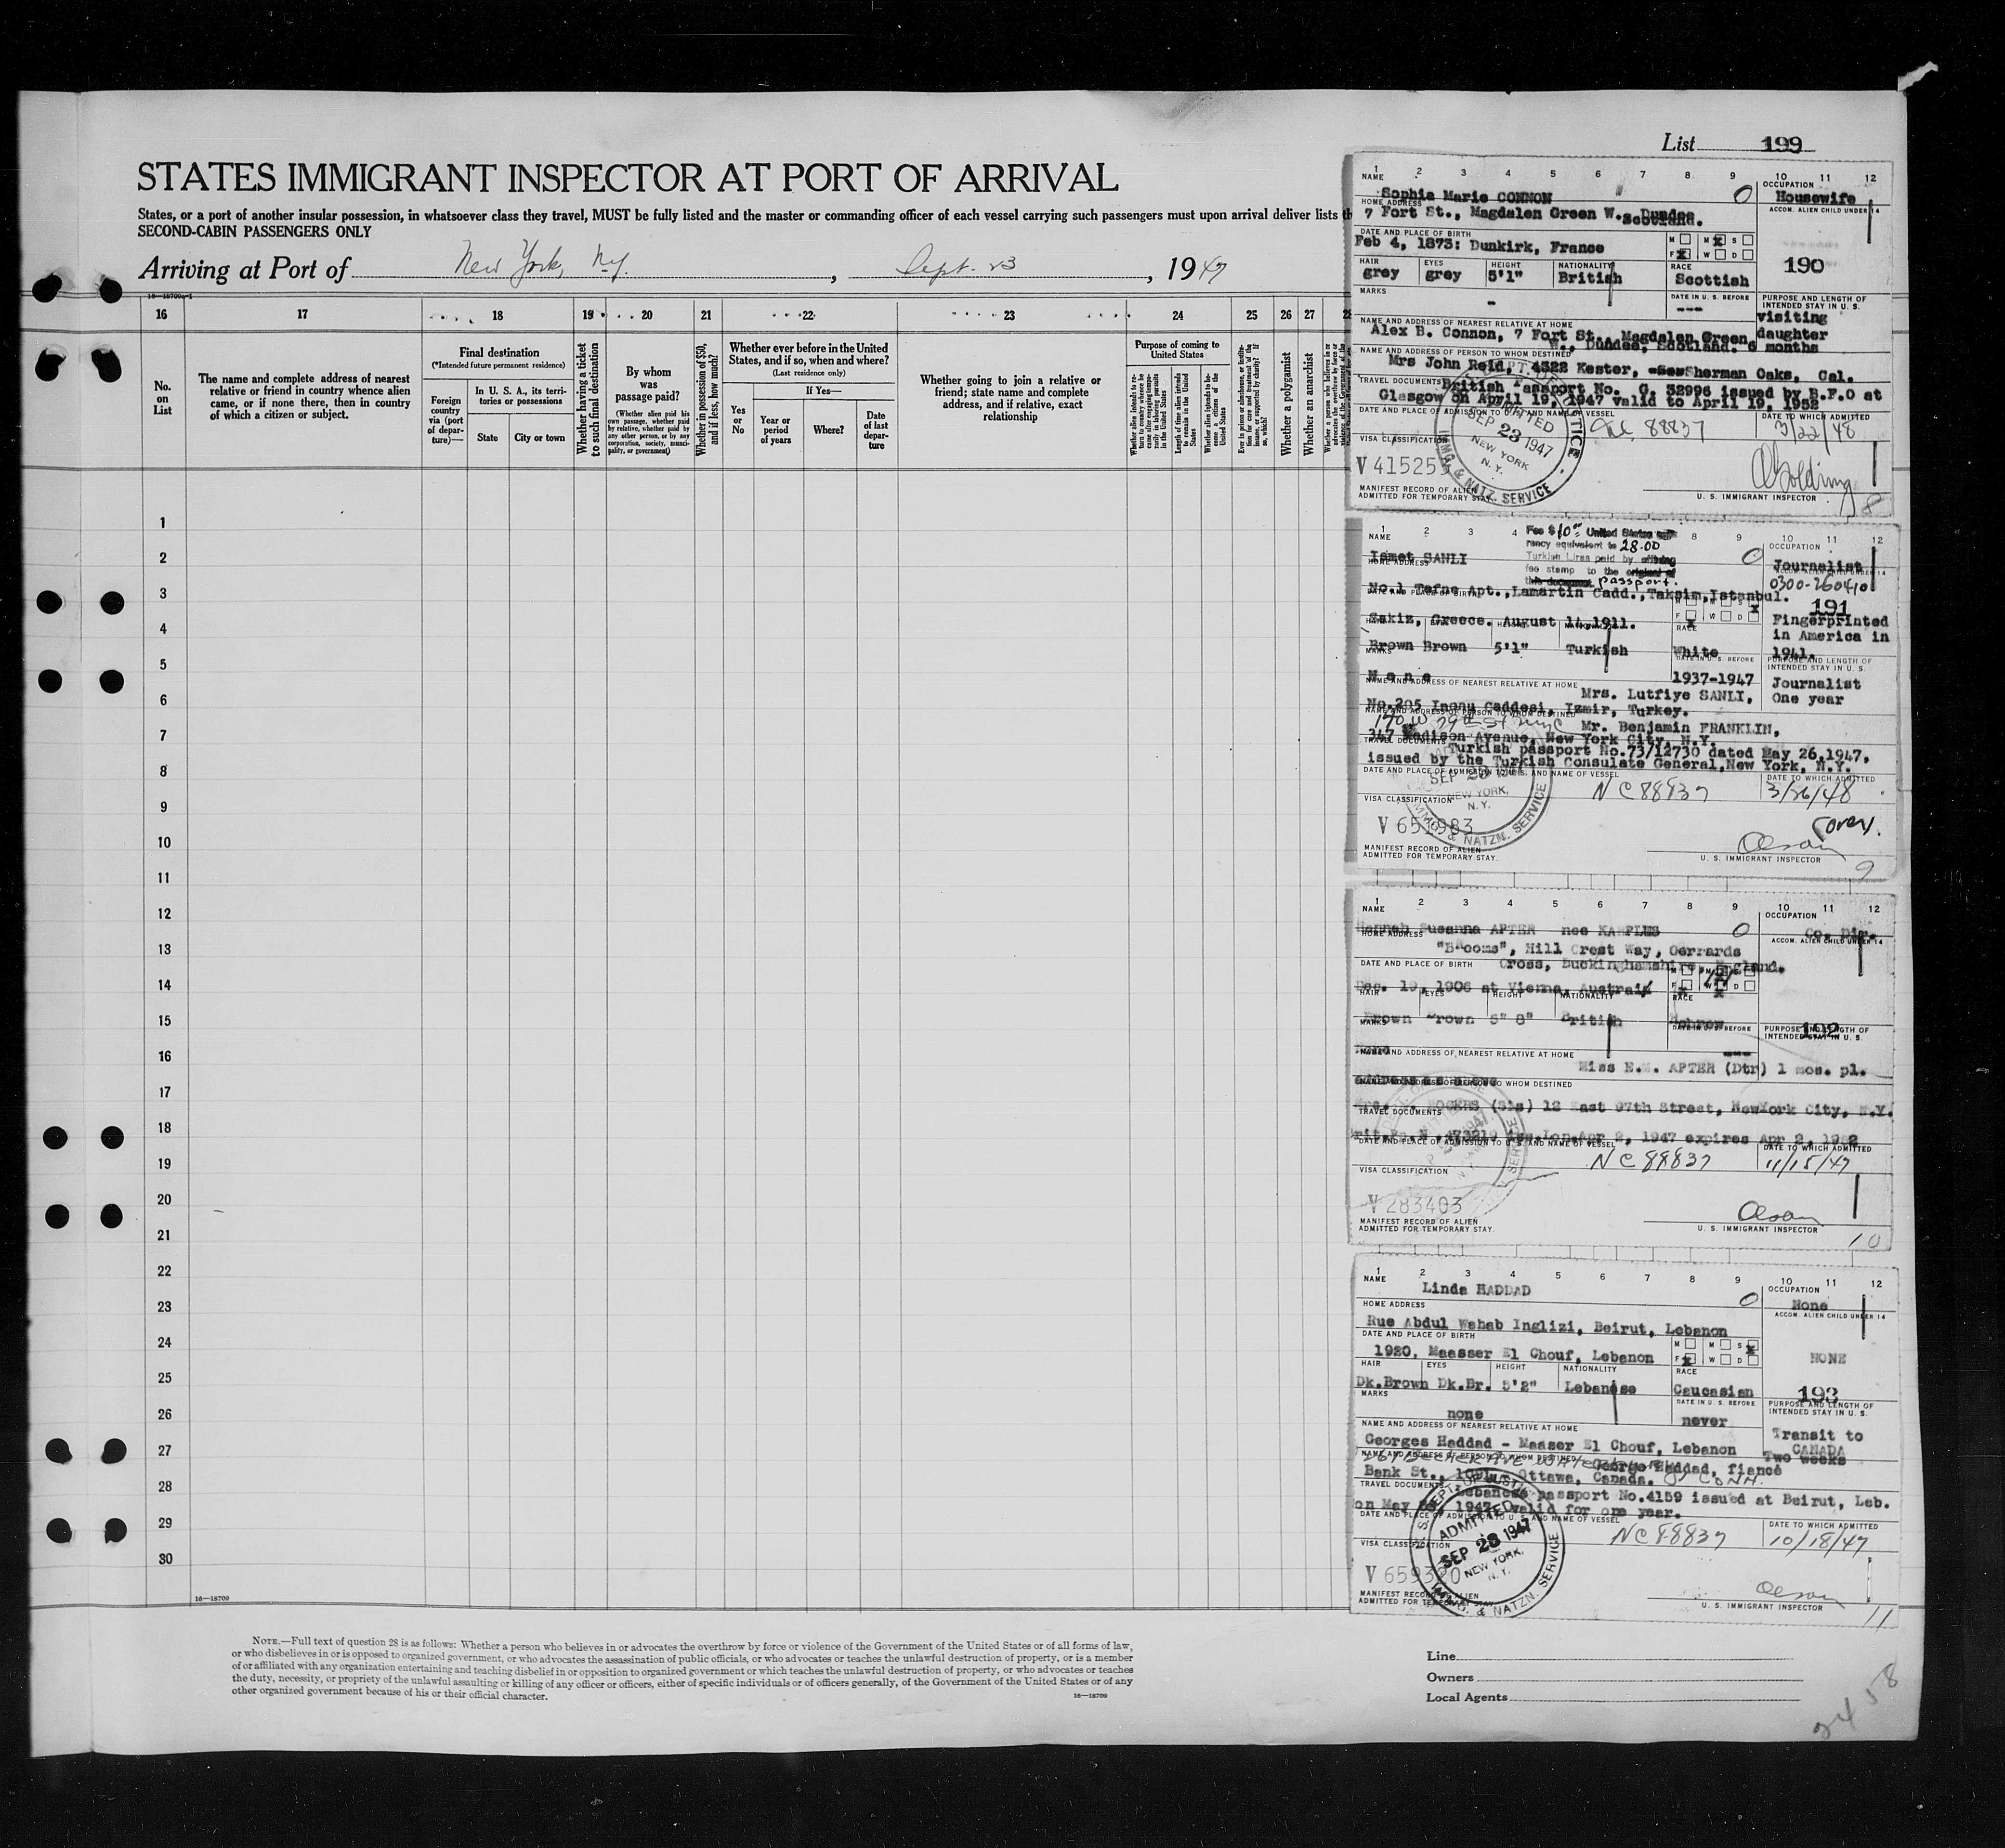 List 199
STATES IMMIGRANT INSPECTOR AT PORT OF ARRIVAL
States, or a port of another insular possession, in whatsoever class they travel, MUST be fully listed and the master or commanding officer of each vessel carrying such passengers must upon arrival deliver lists th
SECOND-CABIN PASSENGERS ONLY
Arriving at Port of New York, N.Y. , Sept. 23 , 1947
16—18700a-1
16 17 18 19 20 21 22 23 24 25 26 27 28
No. on List
The name and complete address of nearest relative or friend in country whence alien came, or if none there, then in country of which a citizen or subject.
Final destination
(*Intended future permanent residence)
Foreign country via (port of departure)—
In U. S. A., its territories or possessions
State
City or town
Whether having a ticket to such final destination
By whom was passage paid?
(Whether alien paid his own passage, whether paid by relative, whether paid by any other person, or by any corporation, society, municipality, or government)
Whether in possession of $50, and if less, how much?
Whether ever before in the United States, and if so, when and where?
(Last residence only)
Yes or No
If Yes—
Year or period of years
Where?
Date of last departure
Whether going to join a relative or friend; state name and complete address, and if relative, exact relationship
Purpose of coming to United States
Length of time alien intends to remain in the United States
Whether alien intends to become a citizen of the United States
Whether a polygamist
Whether an anarchist
1
2
3
4
5
6
7
8
9
10
11
12
13
14
15
16
17
18
19
20
21
22
23
24
25
26
27
28
29
30
16—18700
NOTE.—Full text of question 28 is as follows: Whether a person who believes in or advocates the overthrow by force or violence of the Government of the United States or of all forms of law,
or who disbelieves in or is opposed to organized government, or who advocates the assassination of public officials, or who advocates or teaches the unlawful destruction of property, or is a member
of or affiliated with any organization entertaining and teaching disbelief in or opposition to organized government or which teaches the unlawful destruction of property, or who advocates or teaches
the duty, necessity, or propriety of the unlawful assaulting or killing of any officer or officers, either of specific individuals or of officers generally, of the Government of the United States or of any
other organized government because of his or their official character.
16—18700
1 2 3 4 5 6 7 8 9 10 11 12
NAME
Sophia Marie CONNON
OCCUPATION
Housewife
HOME ADDRESS
7 Fort St., Magdalen Green W. Dundee Scotland.
ACCOM. ALIEN CHILD UNDER 14
DATE AND PLACE OF BIRTH
Feb 4, 1873: Dunkirk, France
M M X S
F X W D
190
HAIR EYES HEIGHT NATIONALITY RACE
grey grey 5'1" British Scottish
MARKS
-
DATE IN U. S. BEFORE
---
PURPOSE AND LENGTH OF INTENDED STAY IN U. S.
visiting daughter
6 months
NAME AND ADDRESS OF NEAREST RELATIVE AT HOME
Alex B. Connon, 7 Fort St., Magdalen Green W., Dundee, Scotland.
NAME AND ADDRESS OF PERSON TO WHOM DESTINED
Mrs John Reid, 4322 Kester, Sherman Oaks, Cal.
TRAVEL DOCUMENTS
British Passport No. C. 32996 issued by B.F.O at
Glasgow on April 19, 1947 valid to April 19, 1952
DATE AND PLACE OF ADMISSION TO U. S. AND NAME OF VESSEL
SEP 23 1947
NEW YORK N. Y.
IMMG. & NATZ. SERVICE
88837
DATE TO WHICH ADMITTED
3/22/48
VISA CLASSIFICATION
V 41525
MANIFEST RECORD OF ALIEN
ADMITTED FOR TEMPORARY STAY.
Goldring
U. S. IMMIGRANT INSPECTOR
8
1 2 3 4 8 9 10 11 12
Fee $10.00 United States cur-
rency equivalent to 28.00
Turkish Liras paid by affixing
fee stamp to the original of
this document passport.
NAME
Ismet SANLI
OCCUPATION
Journalist
0300-260410
HOME ADDRESS
No.1 Tefne Apt., Lamartin Cadd., Taksim, Istanbul.
191
DATE AND PLACE OF BIRTH
Sakiz, Greece. August 14, 1911.
Fingerprinted
in America in
1941.
Brown Brown 5'1" Turkish White
MARKS
None
DATE IN U. S. BEFORE
1937-1947
PURPOSE AND LENGTH OF INTENDED STAY IN U. S.
Journalist
One year
NAME AND ADDRESS OF NEAREST RELATIVE AT HOME
Mrs. Lutfiye SANLI,
No.295 Inonu Caddesi, Izmir, Turkey.
NAME AND ADDRESS OF PERSON TO WHOM DESTINED
170 W 79th St NYC
Mr. Benjamin FRANKLIN,
347 Madison Avenue, New York City, N.Y.
TRAVEL DOCUMENTS
Turkish passport No.73/12730 dated May 26, 1947,
issued by the Turkish Consulate General, New York, N.Y.
DATE AND PLACE OF ADMISSION TO U. S. AND NAME OF VESSEL
NEW YORK, N. Y.
IMMG. & NATZN. SERVICE
NC88837
DATE TO WHICH ADMITTED
3/26/48
VISA CLASSIFICATION
V 651983
(over)
MANIFEST RECORD OF ALIEN
ADMITTED FOR TEMPORARY STAY.
Olson
U. S. IMMIGRANT INSPECTOR
9
1 2 3 4 5 6 7 8 9 10 11 12
NAME
Hannah Susanna APTER nee KARPLUS
OCCUPATION
Co. Dir.
HOME ADDRESS
"Brooms", Hill Crest Way, Gerrards
Cross, Buckinghamshire, England.
ACCOM. ALIEN CHILD UNDER 14
DATE AND PLACE OF BIRTH
Dec. 19, 1906 at Vienna, Austrai
HAIR EYES HEIGHT NATIONALITY RACE
Brown Brown 5" 8" British Hebrew
192
MARKS
None
DATE IN U. S. BEFORE
---
PURPOSE AND LENGTH OF INTENDED STAY IN U. S.
NAME AND ADDRESS OF NEAREST RELATIVE AT HOME
Miss E.M. APTER (Dtr) 1 mos. pl.
NAME AND ADDRESS OF PERSON TO WHOM DESTINED
ROGERS (Sis) 12 East 97th Street, NewYork City, N.Y.
TRAVEL DOCUMENTS
Apr 2, 1947 expires Apr 2, 1952
DATE AND PLACE OF ADMISSION TO U. S. AND NAME OF VESSEL
NC 88837
DATE TO WHICH ADMITTED
11/15/47
VISA CLASSIFICATION
V 283403
MANIFEST RECORD OF ALIEN
ADMITTED FOR TEMPORARY STAY.
Olson
U. S. IMMIGRANT INSPECTOR
10
1 2 3 4 5 6 7 8 9 10 11 12
NAME
Linda HADDAD
OCCUPATION
None
HOME ADDRESS
Rue Abdul Wahab Inglizi, Beirut, Lebanon
ACCOM. ALIEN CHILD UNDER 14
NONE
DATE AND PLACE OF BIRTH
1920, Maasser El Chouf, Lebanon
M M S X
F X W D
HAIR EYES HEIGHT NATIONALITY RACE
Dk.Brown Dk.Br. 5'2" Lebanese Caucasian
193
MARKS
none
DATE IN U. S. BEFORE
never
PURPOSE AND LENGTH OF INTENDED STAY IN U. S.
Transit to
CANADA
Two weeks
NAME AND ADDRESS OF NEAREST RELATIVE AT HOME
Georges Haddad - Maaser El Chouf, Lebanon
NAME AND ADDRESS OF PERSON TO WHOM DESTINED
George Haddad, fiancé
Bank St., Ottawa, Canada.
TRAVEL DOCUMENTS
Lebanese passport No.4159 issued at Beirut, Leb.
on May 1947, valid for one year.
DATE AND PLACE OF ADMISSION TO U. S. AND NAME OF VESSEL
U. S. DEPT. OF JUSTICE
ADMITTED
SEP 23 1947
NEW YORK, N. Y.
IMMG. & NATZN. SERVICE
NC88837
DATE TO WHICH ADMITTED
10/18/47
VISA CLASSIFICATION
V 659320
MANIFEST RECORD OF ALIEN
ADMITTED FOR TEMPORARY STAY
Olson
U. S. IMMIGRANT INSPECTOR
11
Line
Owners
Local Agents
2458